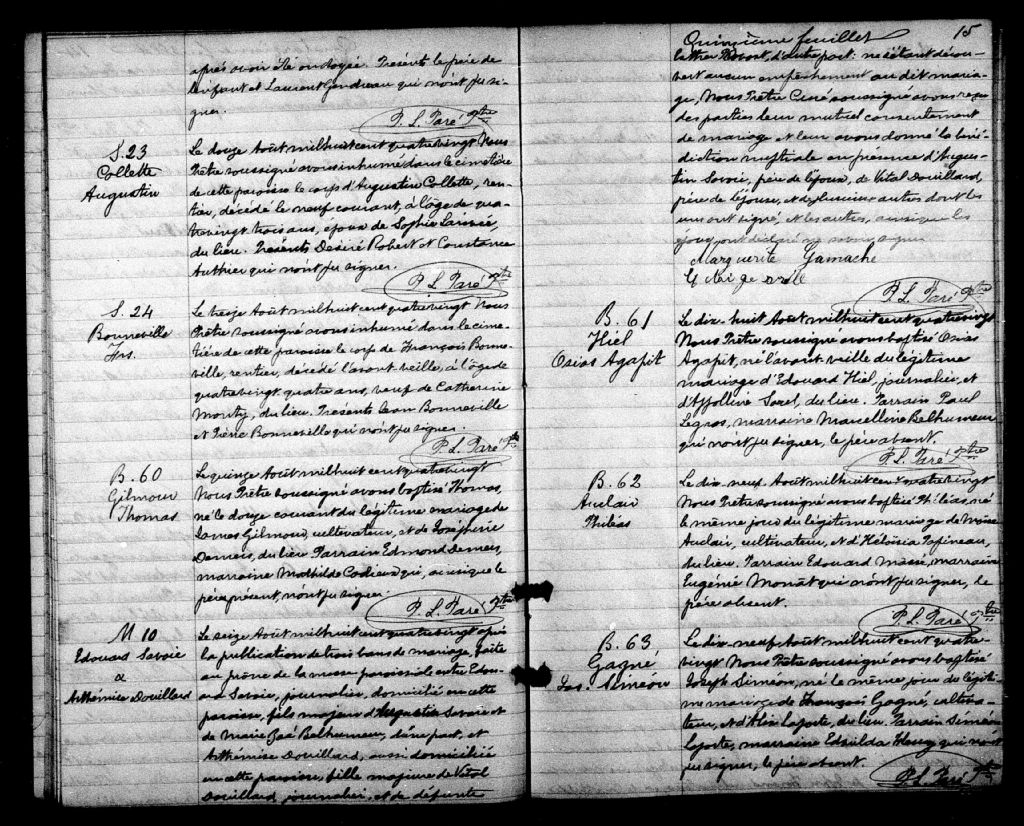 après avoir été ondoyée. Présents le père de
l'enfant et Laurent Gendreau qui n'ont pu si-
gner.
P. L. Paré Ptre
S. 23
Collette
Augustin
Le douze Août mil huit cent quatre vingt Nous
Prêtre soussigné avons inhumé dans le cimetière
de cette paroisse le corps d'Augustin Collette, ren-
tier, décédé le neuf courant, à l'âge de qua-
tre vingt trois ans, époux de Sophie
du lieu. Présents Desiré Robert et Constance
Authier qui n'ont pu signer.
P. L. Paré Ptre
S. 24
Bonneville
Frs.
Le treize Août mil huit cent quatre vingt Nous
Prêtre soussigné avons inhumé dans le cime-
tière de cette paroisse le corps de François Bonne-
ville, rentier, décédé l'avant veille, à l'âge de
quatre vingt quatre ans, veuf de Catherine
Monty, du lieu. Présents Léon Bonneville
et Pierre Bonneville qui n'ont pu signer.
P. L. Paré Ptre
B. 60
Gilmour
Thomas
Le quinze Août mil huit cent quatre vingt
Nous Prêtre soussigné avons baptisé Thomas,
né le douze courant du légitime mariage de
James Gilmour, cultivateur, et de Joséphine
Demers, du lieu. Parrain Edmond Demers,
marraine Mathilde Cadieux qui, ainsi que le
père présent, n'ont pu signer.
P. L. Paré Ptre
M 10
Edouard Savoie
&
Arthémise Douillard
Le seize Août mil huit cent quatre vingt après
la publication de trois bans de mariage, faite
au prône de la messe paroissiale entre Edou-
ard Savoie, journalier, domicilié en cette
paroisse, fils majeur d'Augustin Savoie et
de Marie Zoé Belhumeur, d'une part, et
Arthémise Douillard, aussi domiciliée
en cette paroisse, fille majeure de Vital
Douillard journalier, et de défunte
15
Quinzième feuillet
d'autre part: ne s'étant décou-
vert aucun empêchement au dit maria-
ge, Nous Prêtre Curé soussigné avons reçu
des parties leur mutuel consentement
de mariage et leur avons donné la béné-
diction nuptiale en présence d'Augus-
tin Savoie, père de l'époux, de Vital Douillard,
père de l'épouse, et de plusieurs autres dont les
uns ont signé, et les autres, ainsi que les
époux, ont déclaré ne savoir signer.
Marguerite Gamache
P. L. Paré Ptre
B. 61
Hiel
Osias Agapit
Le dix-huit Août mil huit cent quatre vingt
Nous Prêtre soussigné avons baptisé Osias
Agapit, né l'avant veille du légitime
mariage d'Edouard Hiel, journalier, et
d'Appolline Sorel, du lieu. Parrain Paul
Legros, marraine Marcelline Belhumeur
qui n'ont pu signer, le père absent.
P. L. Paré Ptre
B. 62
Auclair
Philéas
Le dix-neuf Août mil huit cent quatre vingt
Nous Prêtre soussigné avons baptisé Philéas, né
le même jour du légitime mariage de Moïse
Auclair, cultivateur, et d'Héloïsia Papineau,
du lieu. Parrain Edouard Massé, marraine
Eugénie Monat qui n'ont pu signer, le
père absent.
P. L. Paré Ptre
B. 63
Gagné
Jos. Siméon
Le dix-neuf Août mil huit cent quatre
vingt Nous Prêtre soussigné avons baptisé
Joseph Siméon, né le même jour du légiti-
me mariage de François Gagné, cultiva-
teur, et d'Alice Laporte, du lieu. Parrain Siméon
Laporte, marraine Edsilda Fleury qui n'ont
pu signer, le père absent.
P. L. Paré Ptre